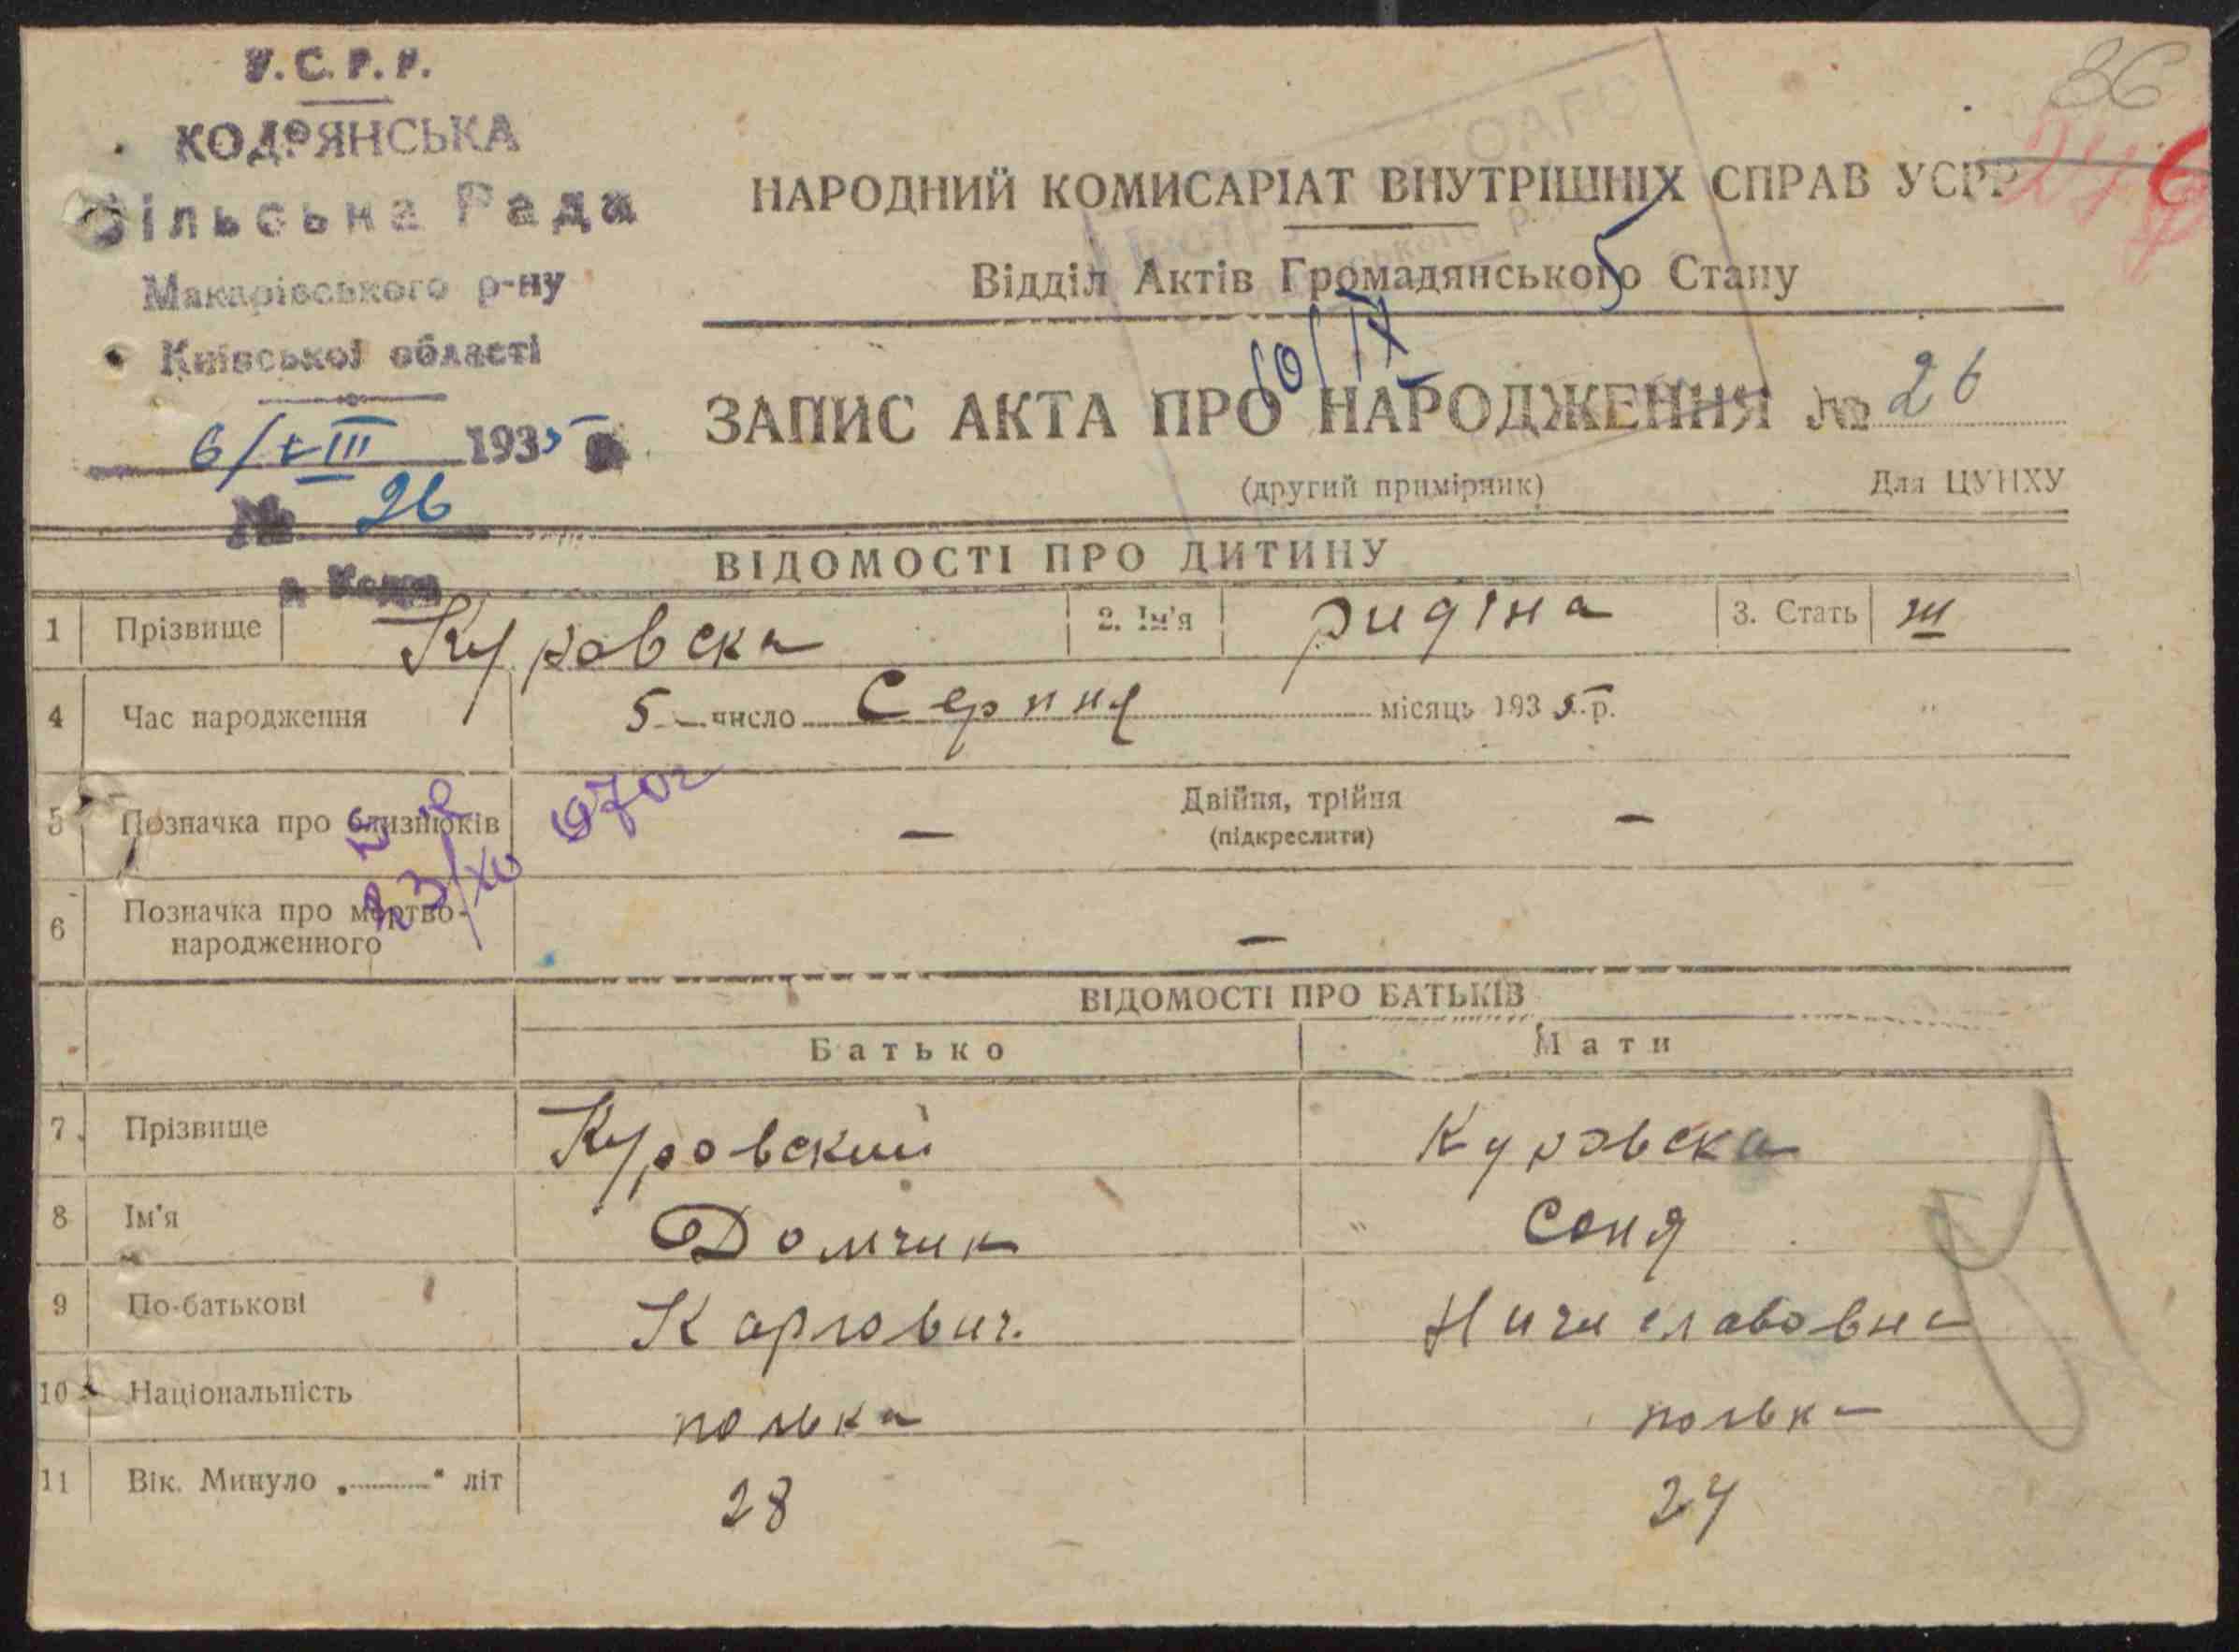 У.С.Р.Р.
КОДРЯНСЬКА
Сільська Рада
Макарівського р-ну
Київської області
6/VIII 1935 р.
№ 26
с. Кодра
36
НАРОДНИЙ КОМИСАРІАТ ВНУТРІШНІХ СПРАВ УСРР
Відділ Актів Громадянського Стану
10/IX
ЗАПИС АКТА ПРО НАРОДЖЕННЯ № 26
(другий примірник) Для ЦУНХУ
ВІДОМОСТІ ПРО ДИТИНУ
1 Прізвище Куровска 2. Ім'я 3. Стать ж
4 Час народження 5 число Серпня місяць 1935 р.
5 Позначка про близнюків — Двійня, трійня —
(підкреслити)
1970г
23/XII
6 Позначка про мертво-
народженного —
ВІДОМОСТІ ПРО БАТЬКІВ
Батько Мати
7 Прізвище Куровский Куровска
8 Ім'я Домчик Соня
9 По-батькові Карлович
10 Національність полька полька
11 Вік. Минуло „ “ літ 28 24